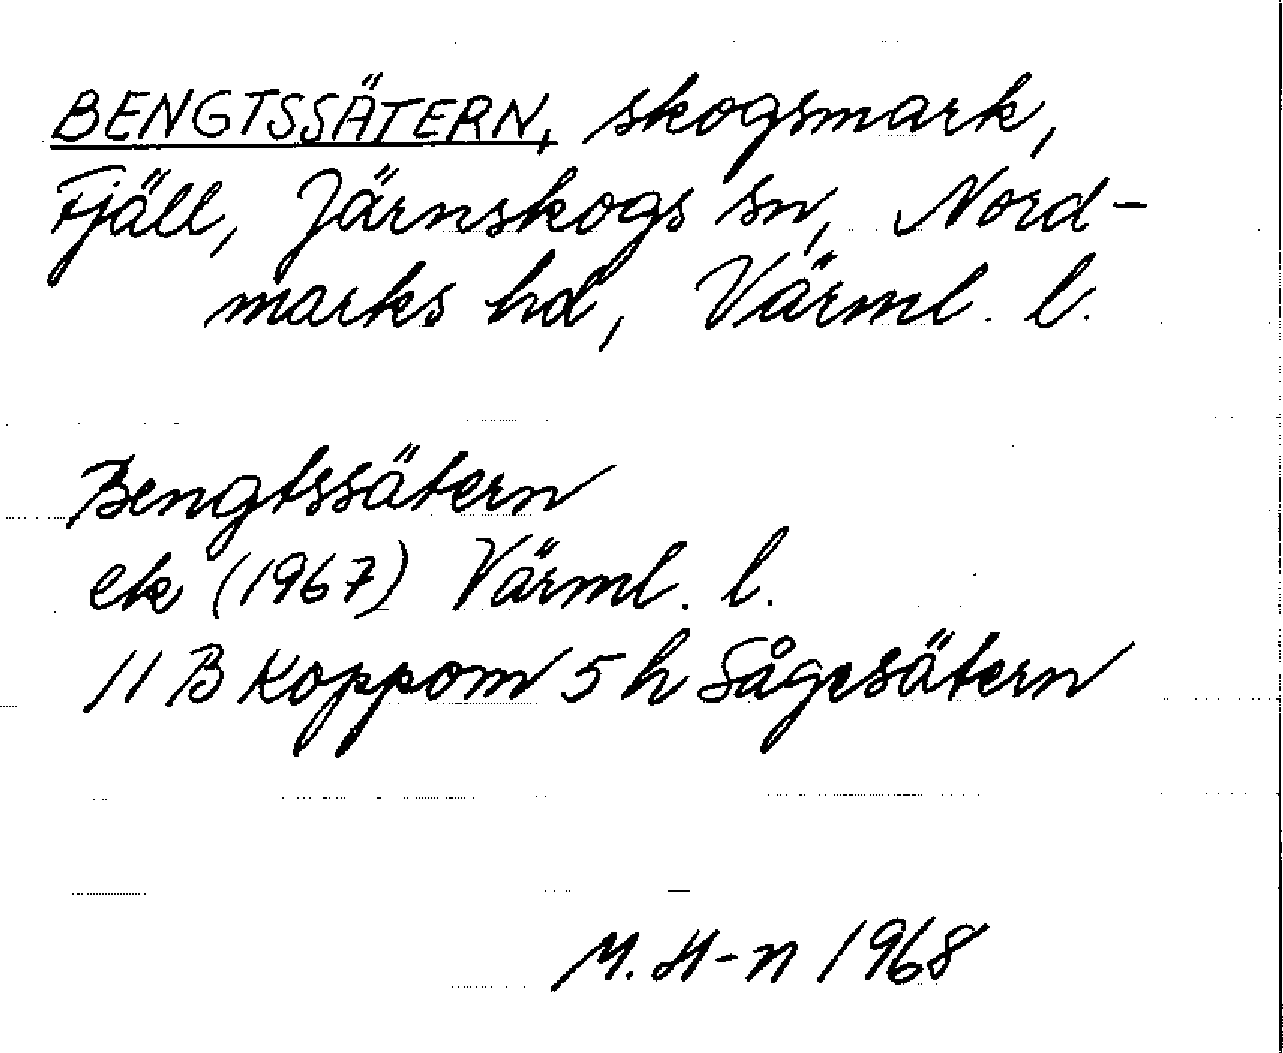 BENGTSSÄTERN, skogsmark,
Fjäll, Järnskogs sn, Nord-
marks hd, Värml. l.
Bengtssätern
ek (1967) Värml. l.
11 B Koppom 5 h Sågesätern
M. H-n 1968